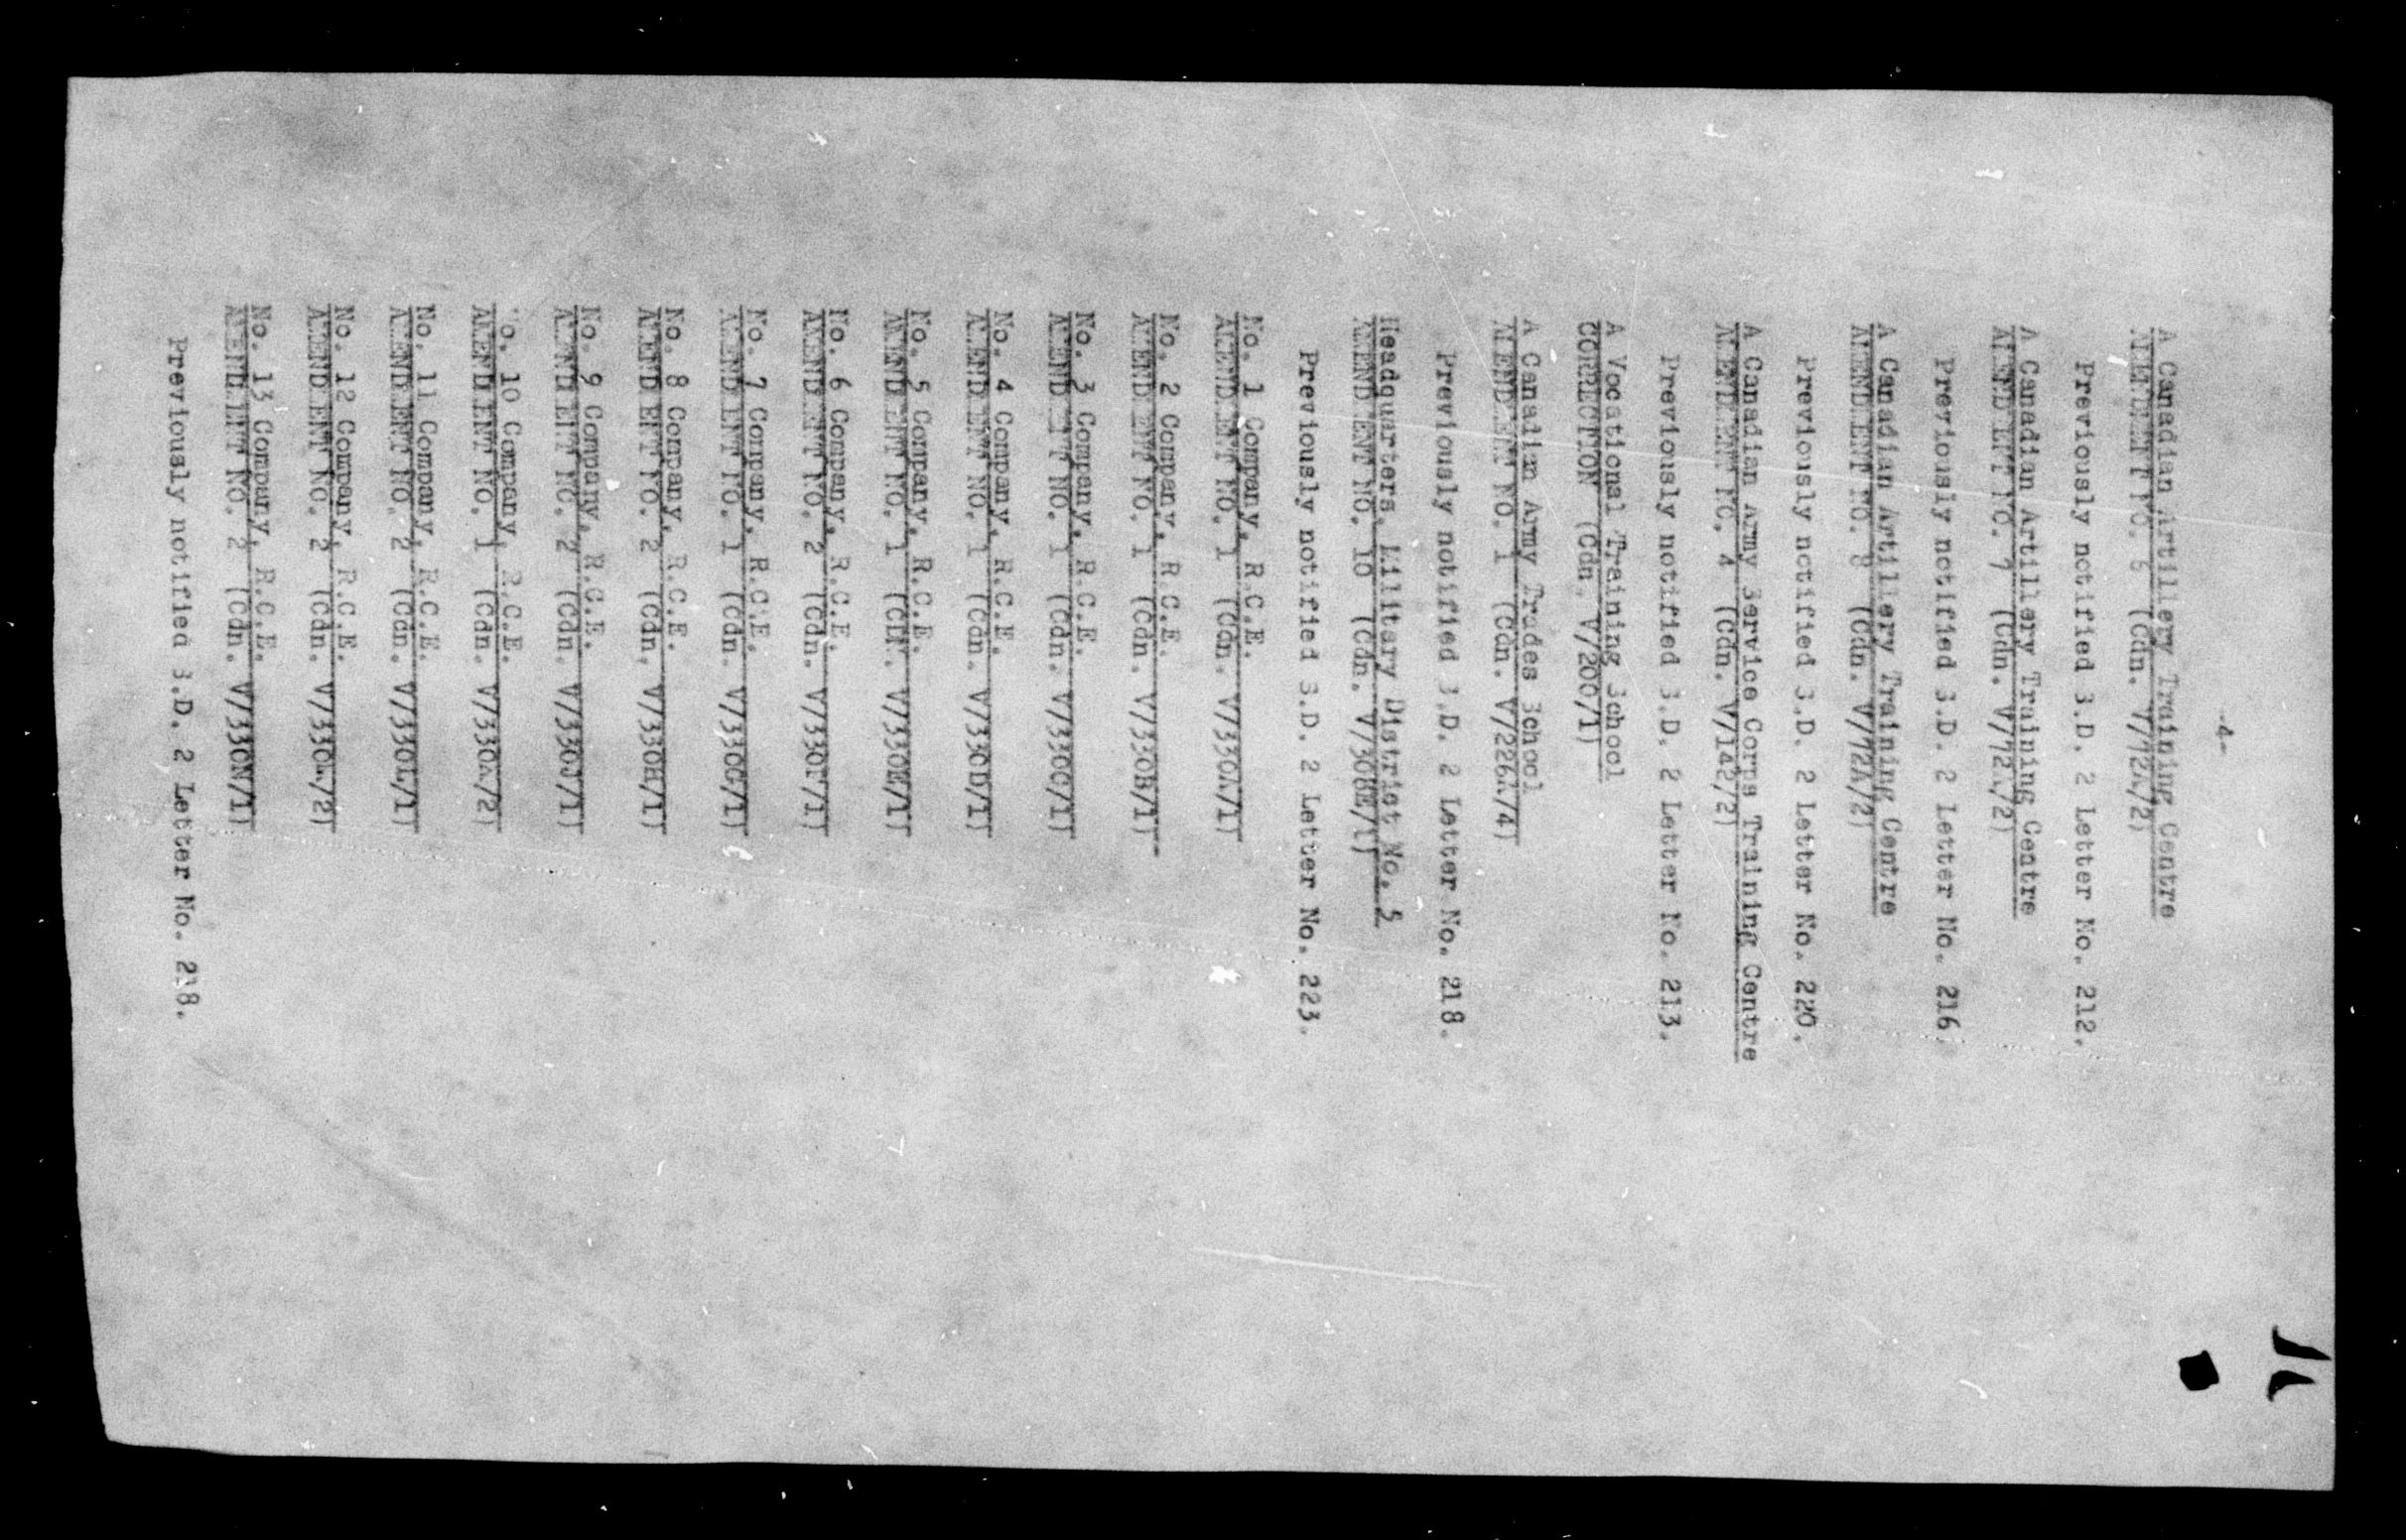 -4-
A Canadian Artillery Training Centre
AMENDMENT NO. 6 (Cdn. V/72A/2)
Previously notified S.D. 2 Letter No. 212.
A Canadian Artillery Training Centre
AMENDMENT NO. 7 (Cdn. V/72A/2)
Previously notified S.D. 2 Letter No. 216.
A Canadian Artillery Training Centre
AMENDMENT NO. 8 (Cdn. V/72A/2)
Previously notified S.D. 2 Letter No. 220.
A Canadian Army Service Corps Training Centre
AMENDMENT NO. 4 (Cdn. V/142/2)
Previously notified S.D. 2 Letter No. 213.
A Vocational Training School
CORRECTION (Cdn. V/200/1)
A Canadian Army Trades School
AMENDMENT NO. 1 (Cdn. V/226A/4)
Previously notified S.D. 2 Letter No. 218.
Headquarters, Military District No. 5
AMENDMENT NO. 10 (Cdn. V/308E/1)
Previously notified S.D. 2 Letter No. 223.
No. 1 Company, R.C.E.
AMENDMENT NO. 1 (Cdn. V/330A/1)
No. 2 Company, R.C.E.
AMENDMENT NO. 1 (Cdn. V/330B/1)
No. 3 Company, R.C.E.
AMENDMENT NO. 1 (Cdn. V/330C/1)
No. 4 Company, R.C.E.
AMENDMENT NO. 1 (Cdn. V/330D/1)
No. 5 Company, R.C.E.
AMENDMENT NO. 1 (Cdn. V/330E/1)
No. 6 Company, R.C.E.
AMENDMENT NO. 2 (Cdn. V/330F/1)
No. 7 Company, R.C.E.
AMENDMENT NO. 1 (Cdn. V/330G/1)
No. 8 Company, R.C.E.
AMENDMENT NO. 2 (Cdn. V/330H/1)
No. 9 Company, R.C.E.
AMENDMENT NO. 2 (Cdn. V/330J/1)
No. 10 Company, R.C.E.
AMENDMENT NO. 1 (Cdn. V/330K/2)
No. 11 Company, R.C.E.
AMENDMENT NO. 2 (Cdn. V/330L/1)
No. 12 Company, R.C.E.
AMENDMENT NO. 2 (Cdn. V/330M/2)
No. 13 Company, R.C.E.
AMENDMENT NO. 2 (Cdn. V/330N/1)
Previously notified S.D. 2 Letter No. 218.